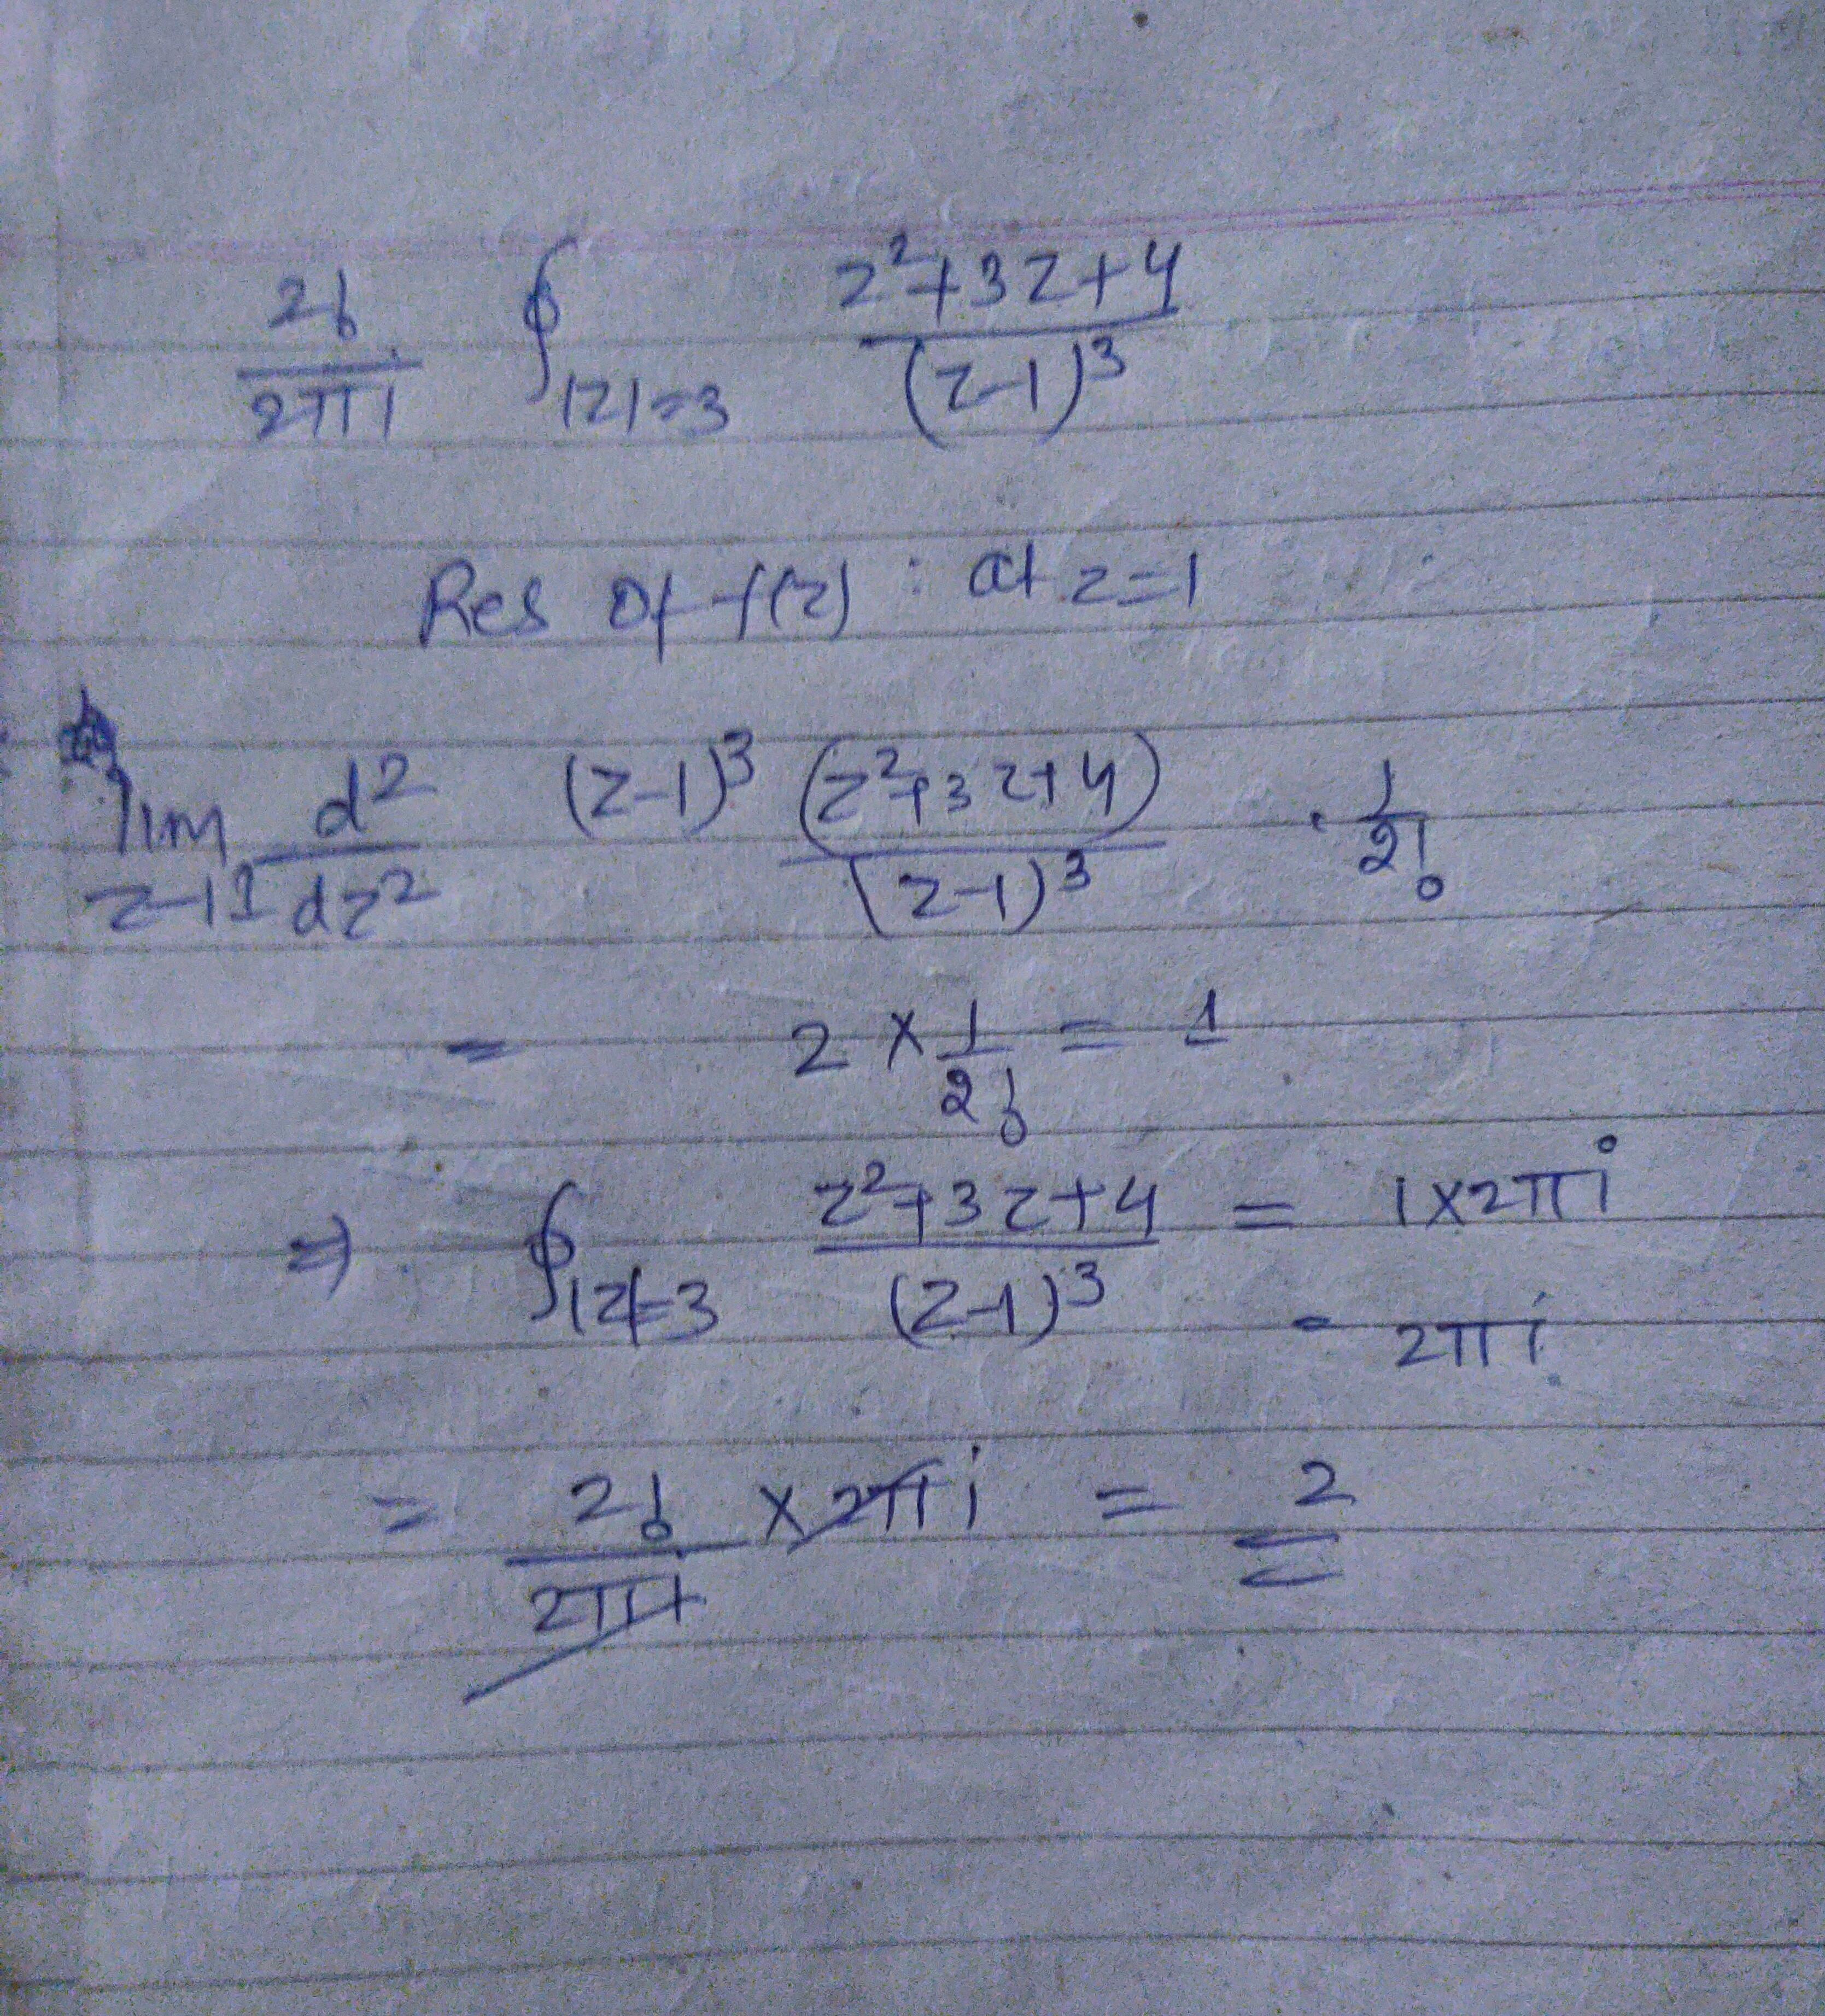 2! / 2πi ∮|z|=3 z²+3z+4 / (z-1)³
Res Of f(z) : at z=1
lim z→1 d²/dz² (z-1)³ (z²+3z+4) / (z-1)³ · 1/2!
= 2 × 1/2! = 1
⇒ ∮|z|=3 z²+3z+4 / (z-1)³ = 1×2πi
= 2πi
= 2! / 2πi × 2πi = 2